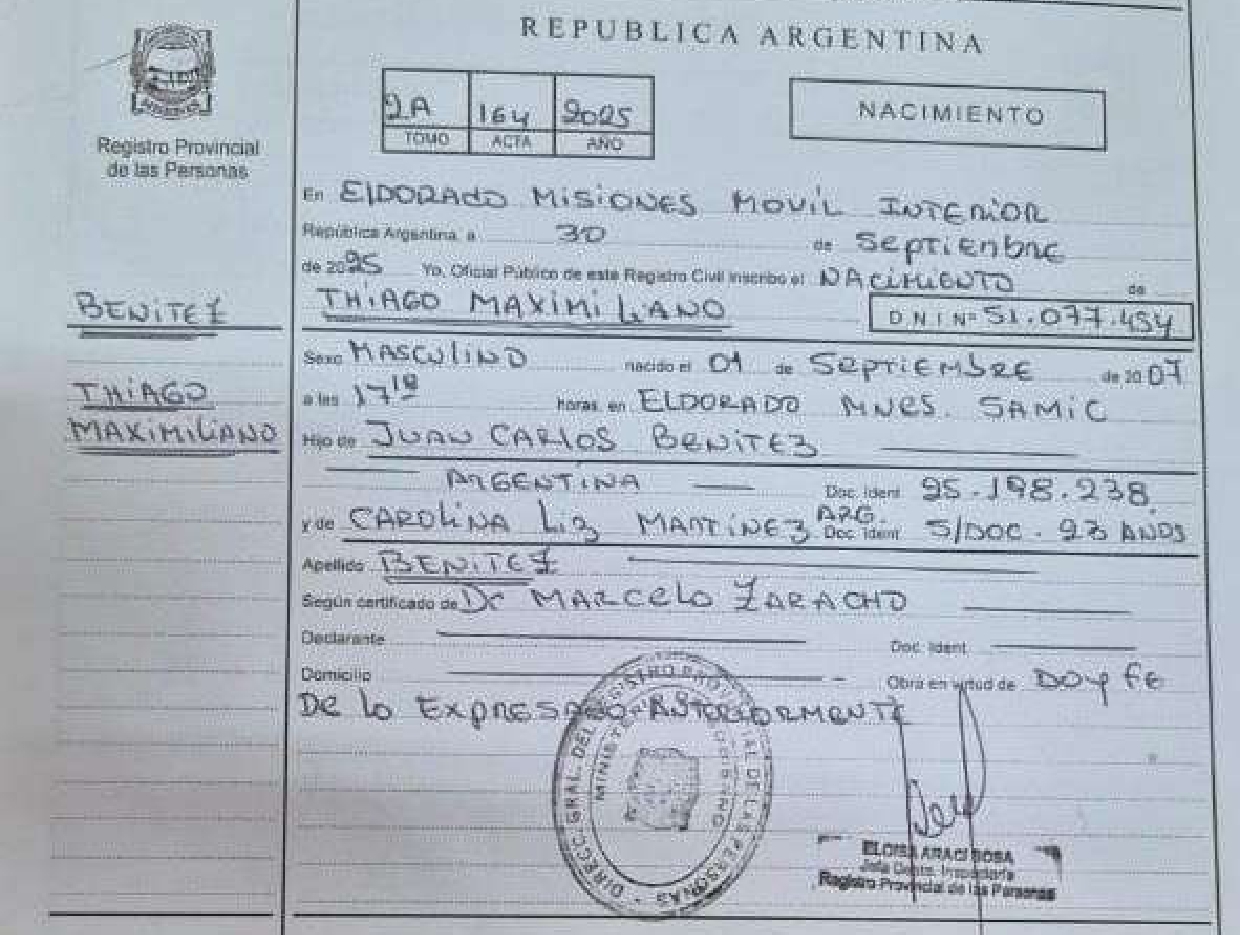 REPUBLICA ARGENTINA
MISIONES
Registro Provincial
de las Personas
2A 164 2025
TOMO ACTA AÑO
NACIMIENTO
En ElDORADO MISIONES MOVIL INTERIOR
República Argentina, a 30 de SEPTIENBRE
de 2025 Yo, Oficial Público de este Registro Civil inscribo el NACIMIENTO de
THIAGO MAXIMILIANO D.N.I Nº 51.077.454
BENITEZ
THIAGO
MAXIMILIANO
Sexo MASCULINO nacido el 01 de SEPTIEMBRE de 20 07
a las 17 18 horas, en ELDORADO MNES. SAMIC
Hijo de JUAN CARLOS BENITEZ
ARGENTINA Doc. Ident 95.198.238
y de CAROLINA Liz MARTINEZ ARG. Doc. Ident S/DOC. 23 AÑOS
Apellido BENITEZ
Según certificado de Dr MARCELO ZARACHO
Declarante Doc. Ident.
Domicilio Obra en virtud de DOY FE
De lo EXPRESADO ANTERIORMENTE
DIRECC. GRAL. DEL REGISTRO PROVINCIAL DE LAS PERSONAS
ELOISA ARACI SOSA
Registro Provincial de las Personas